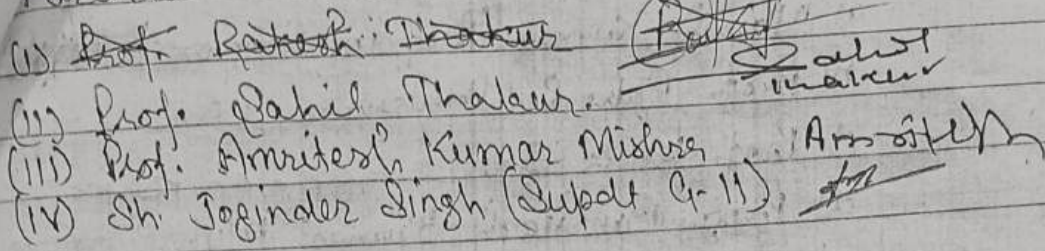 (i) Prof. Rakesh Thakur
(ii) Prof. Sahil Thakur. Sahil Thakur
(iii) Prof. Amritesh Kumar Mishra Amritesh
(iv) Sh. Joginder Singh (Supdt G-II)